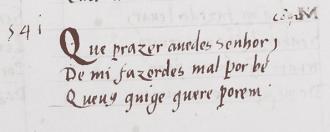 541
Que prazer auedes senhor,
De mi fazerdes mal por bẽ
Queuꝯ quige quere porem